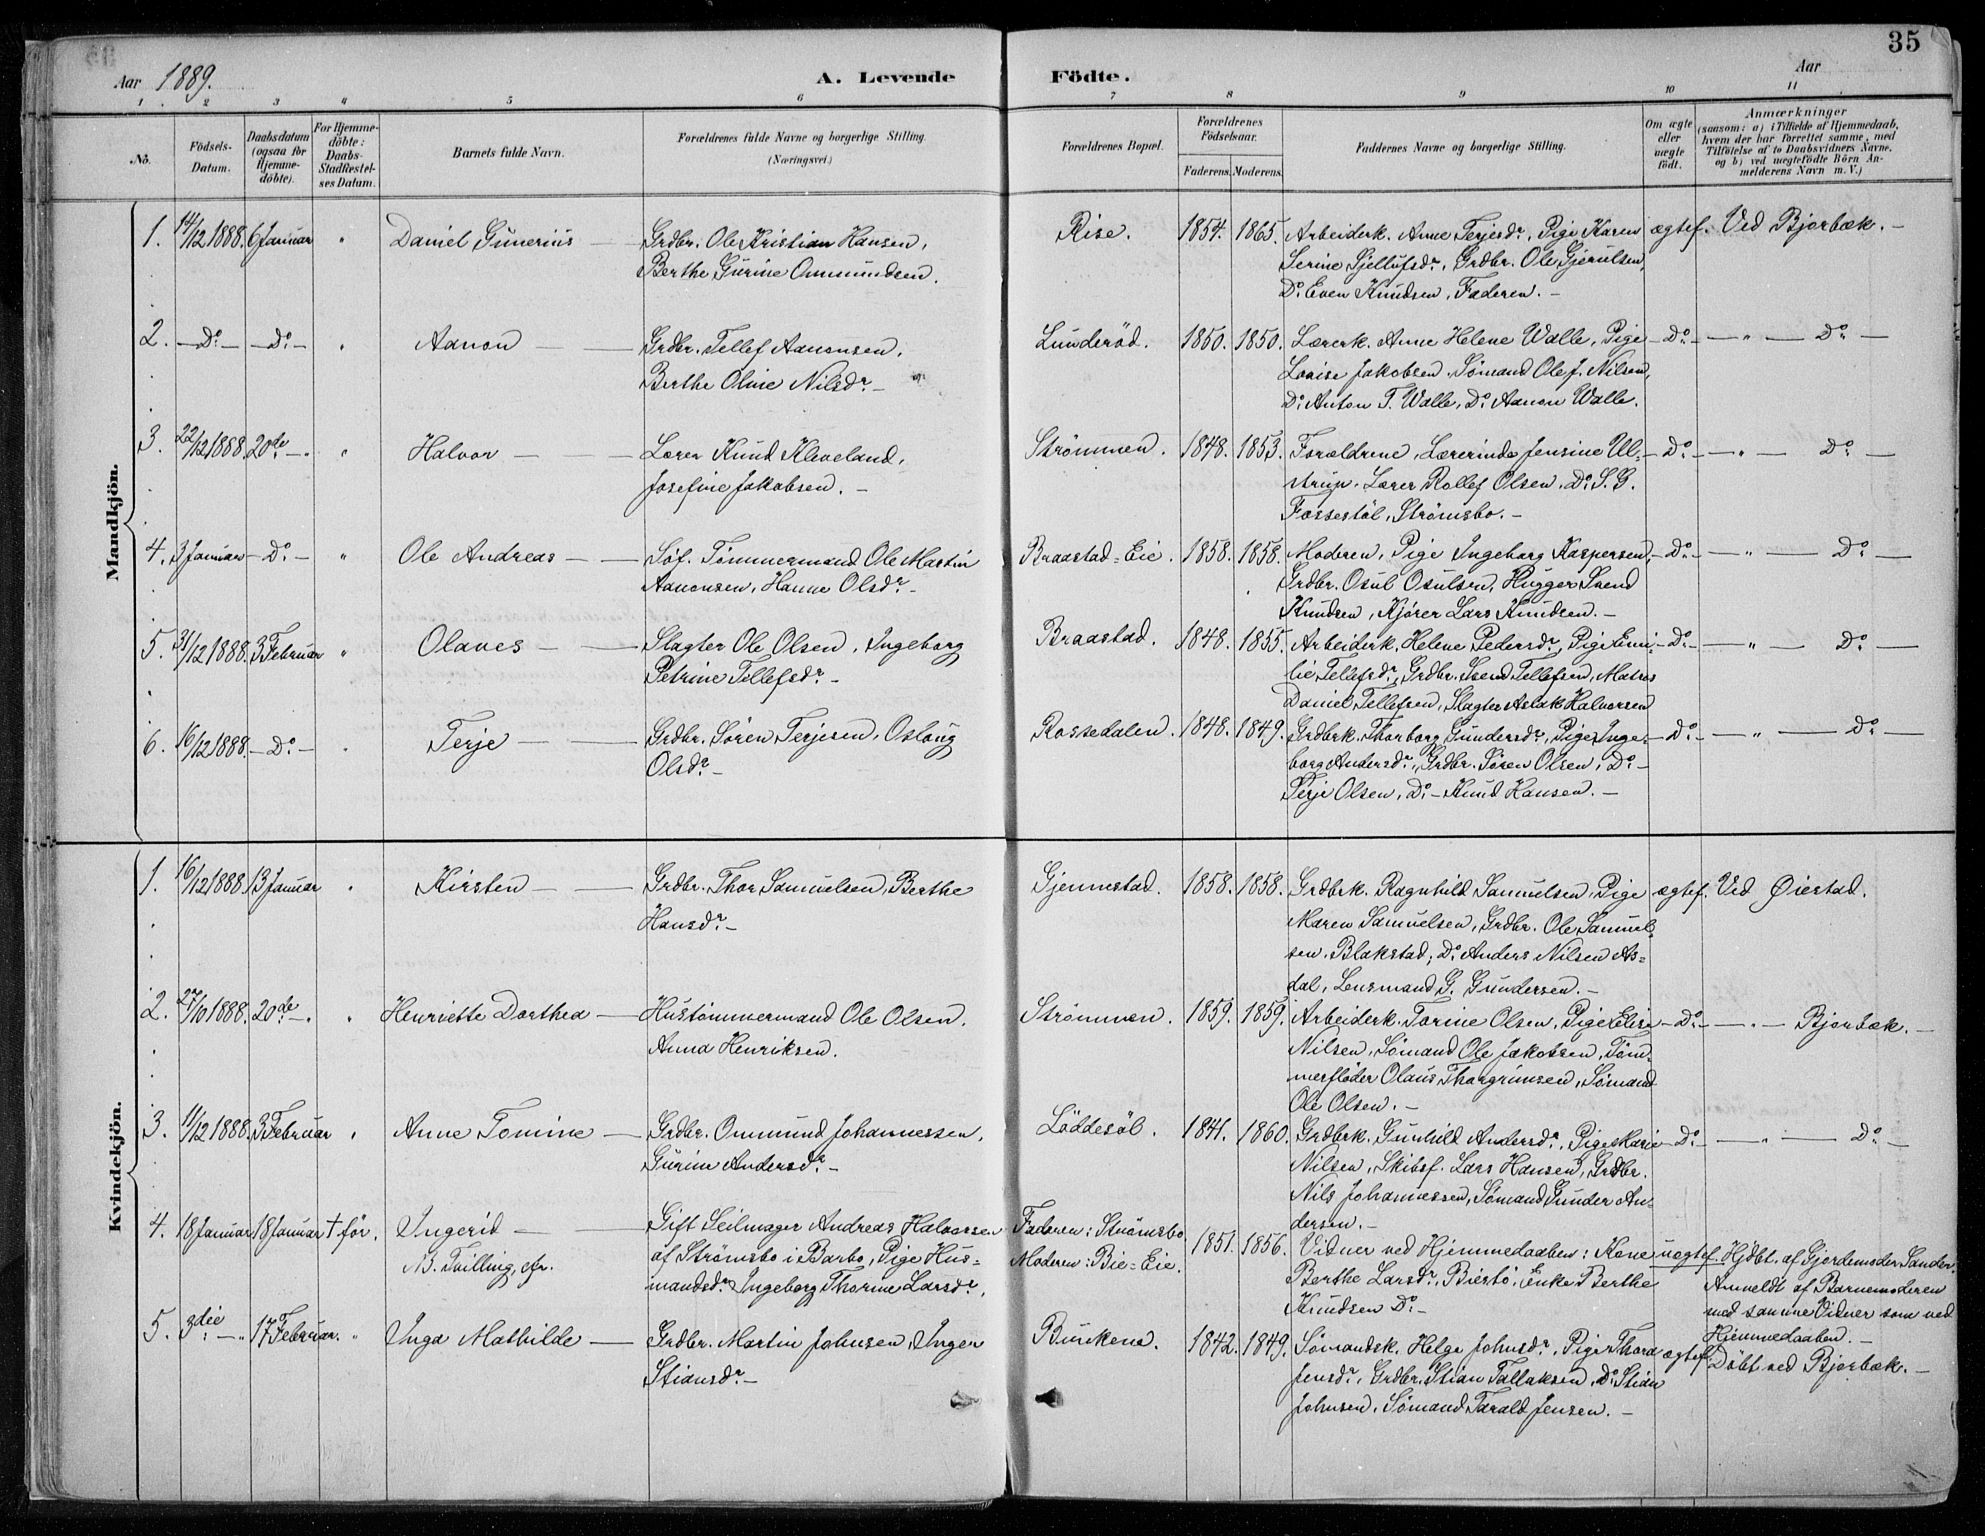 35
Aar 1889. A. Levende Födte. Aar
1 2 3 4 5 6 7 8 9 10 11
No. Födsels-Datum. Daabsdatum (ogsaa for Hjemmedöbte). For Hjemmedöbte: Daabs-Stadfæstelses Datum. Barnets fulde Navn. Forældrenes fulde Navne og borgerlige Stilling. (Næringsvei.) Forældrenes Bopæl. Forældrenes Födselsaar. Faderens. Moderens. Faddernes Navne og borgerlige Stilling. Om ægte eller uægte födt. Anmærkninger (saasom: a) i Tilfælde af Hjemmedaab, hvem der har forrettet samme, med Tilföielse af to Daabsvidners Navne, og b) ved uægtefödte Börn Anmelderens Navn m. V.)
Mandkjön.
1. 14/12 1888. 6 Januar " Daniel Gunerius Grdbr. Ole Kristian Hansen, Rise. 1854. 1865. Arbeiderk. Anne Terjesdr., Pige Karen ægtef. Ved Bjorbæk. –
Berthe Gurine Ommundsen. Serine Gjellufsdr., Grdbr. Ole Gjerulsen,
Do. Even Knudsen, Faderen. –
2. – Do. – – Do. – " Aanon – Grdbr. Tellef Aanonsen, Lunderöd. 1850. 1850. Lærerk. Anne Helene Walle, Pige – Do. – – " – Do. –
Berthe Oline Nilsdr. – Lovise Jakobsen, Sömand Ole J. Nilsen,
Do. Anton T. Walle, Do. Aanon Walle.
3. 22/12 1888. 20de – " Halvor – Lærer Knud Kleveland, Strömmen. 1848. 1853. Forældrene, Lærerinde Jensine Ul- – Do. – – " – Do. –
Josefine Jakobsen. – strup, Lærer Rollef Olsen, Do. S. G.
Fossestöl, Strömsbo. –
4. 3 Januar – Do. – " Ole Andreas – Söf. Tömmermand Ole Martin Braastad-Eie. 1858. 1858. Moderen, Pige Ingeborg Kaspersen, – Do. – – " – Do. –
Aanonsen, Hanne Olsdr. – Grdbr. Osul Osulsen, Hugger Svend
Knudsen, Kjörer Lars Knudsen. –
5. 31/12 1888. 3 Februar " Olaves – Slagter Ole Olsen, Ingeborg Braastad. 1848. 1855. Arbeiderk. Helene Pedersdr., Pige Emi- – Do. – – " – Do. –
Petrine Tellefsdr. – lie Tellefsdr., Grdbr. Svend Tellefsen, Matros
Daniel Tellefsen, Slagter Aslak Halvorsen
6. 16/12 1888. – Do. – " Terje – Grdbr. Sören Terjesen, Oslaug Rossedalen. 1848. 1849. Grdbrk. Thorborg Gundersdr., Pige Inge- – Do. – – " – Do. –
Olsdr. – borg Andersdr., Grdbr. Sören Olsen, Do. –
Terje Olsen, Do. – Knud Hansen. –
Kvindekjön.
1. 16/12 1888. 13 Januar " Kirsten – Grdbr. Thor Samuelsen, Berthe Gjennestad. 1858. 1858. Grdbrk. Ragnhild Samuelsen, Pige ægtef. Ved Öiestad.
Hansdr. – Maren Samuelsen, Grdbr. Ole Samuel-
sen, Blakstad, Do. Anders Nilsen As-
dal, Lensmand G. Gundersen. –
2. 27/10 1888. 20de – " Henriette Dorthea – Hustömmermand Ole Olsen, Strömmen. 1859. 1859. Arbeiderk. Torine Olsen, Pige Elise – Do. – – " – Bjorbæk. –
Anna Henriksen. Nilsen, Sömand Ole Jakobsen, Töm-
merflöder Olaus Thorgrimsen, Sömand
Ole Olsen. –
3. 11/12 1888. 3 Februar " Anne Tomine – Grdbr. Ommund Johannessen, Löddesöl. 1841. 1860. Grdbrk. Gunhild Andersdr., Pige Marie – Do. – – " – Do. –
Gurine Andersdr. – Nilsen, Skibsf. Lars Hansen, Grdbr.
Nils Johannessen, Sömand Gunder An-
dersen. –
4. 18 Januar 18 Januar † för. Ingerid – Gift Seilmager Andreas Halvorsen Faderen: Strömsbo, 1851. 1856. Vidner ved Hjemmedaaben: Kone uægtef. Hjdbt. af Gjordemoder Sander.
NB. Tvilling, efr. af Strömsbo i Barbo, Pige Hus- Moderen: Bie-Eie. Berthe Larsdr., Biestö, Enke Berthe Anmeldt af Barnemoderen
mandsdr. Ingeborg Thorine Larsdr., Knudsen Do. – med samme Vidner som ved
Hjemmedaaben. –
5. 3die – " 17 Februar. " Inga Mathilde – Grdbr. Martin Johnsen, Inger Buukene. 1842. 1849. Sömandsk. Helga Johnsdr., Pige Thora ægtef. Döbt ved Bjorbæk. –
Stiansdr. – Jensdr., Grdbr. Stian Tallaksen, Do. Stian
Johnsen, Sömand Tarald Jensen. –